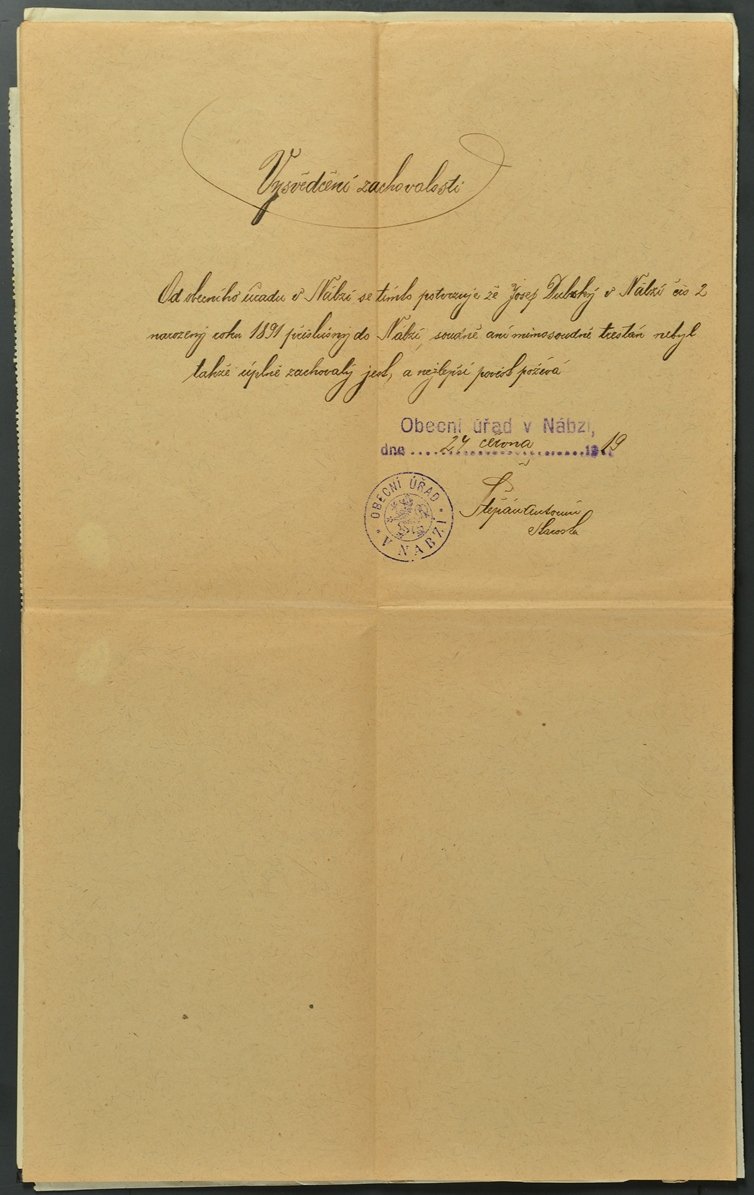 Vysvědčení zachovalosti
Od obecního úradu v Nábzí, se tímto potvrzuje že Josef Dubský v Nábzí čis 2
narozený roku 1891 příslušný do Nábzí, soudně ani mimosoudně trestán nebyl
takže úplně zachovalý jest, a nejlepší pověst požívá
Obecní úřad v Nábzí,
dne 24 19
OBECNÍ ÚŘAD
V NÁBZÍ
Štěpán Antonín
Starosta